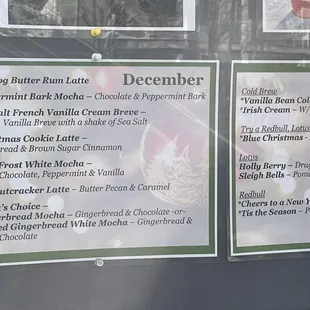 og Butter Rum Latte
December
ermint Bark Mocha – Chocolate & Peppermint Bark
alt French Vanilla Cream Breve –
Vanilla Breve with a shake of Sea Salt
tmas Cookie Latte –
bread & Brown Sugar Cinnamon
Frost White Mocha –
Chocolate, Peppermint & Vanilla
utcracker Latte – Butter Pecan & Caramel
's Choice –
erbread Mocha – Gingerbread & Chocolate -or-
ed Gingerbread White Mocha – Gingerbread &
Chocolate
Cold Brew
*Vanilla Bean Col
*Irish Cream – W/
Try a Redbull, Lotus
*Blue Christmas -
Lotus
Holly Berry – Drag
Sleigh Bells – Pome
Redbull
*Cheers to a New Y
*Tis the Season – P